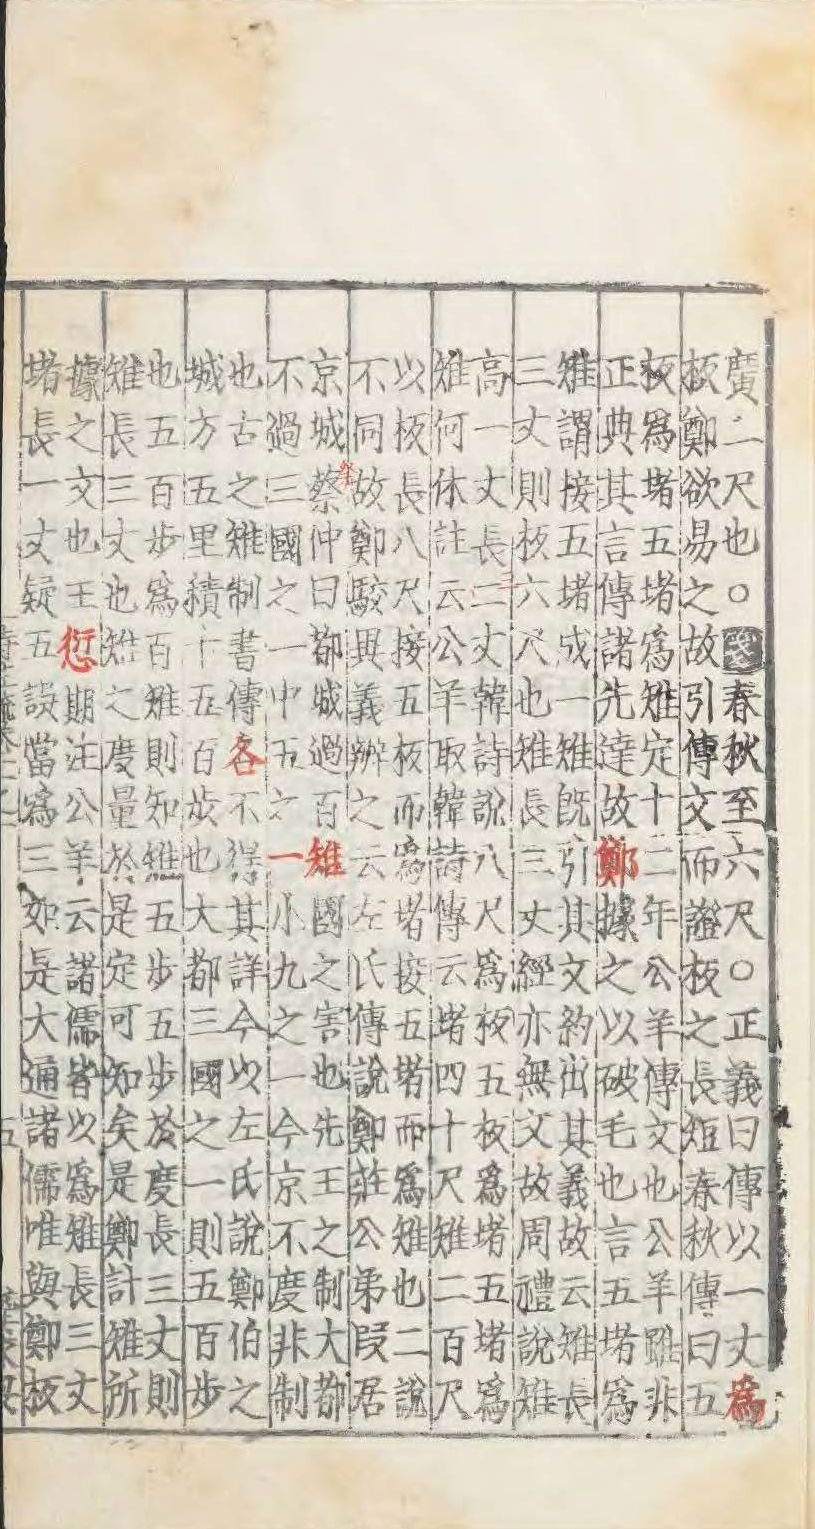 廣二尺也○箋春秋至六尺○正義曰傳以一丈爲
板鄭欲易之故引傳文而證板之長短春秋傳曰五
板爲堵五堵爲雉定十二年公羊傳文也公羊雖非
正典其言傳諸先達故鄭據之以破毛也言五堵爲
雉謂接五堵成一雉旣引其文約出其義故云雉長
三丈則板六尺也雉長三丈經亦無文故周禮說雉
高一丈長三丈韓詩說八尺爲板五板爲堵五堵爲
雉何休註云公羊取韓詩傳云堵四十尺雉二百尺
以板長八尺接五板而爲堵接五堵而爲雉也二說
不同故鄭駮異義辨之云左氏傳說鄭莊公弟段居
京城蔡仲曰都城過百雉國之害也先王之制大都
祭
不過三國之一中五之一小九之一今京不度非制
也古之雉制書傳各不得其詳今以左氏說鄭伯之
城方五里積千五百步也大都三國之一則五百步
也五百步爲百雉則知雉五步五步於度長三丈則
雉長三丈也雉之度量於是定可知矣是鄭計雉所
據之文也王愆期注公羊云諸儒皆以爲雉長三丈
堵長一丈疑五誤當爲三如是大通諸儒唯與鄭板